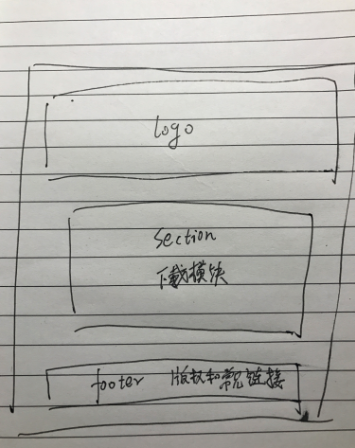 logo
section
下载模块
footer 版权和常见链接